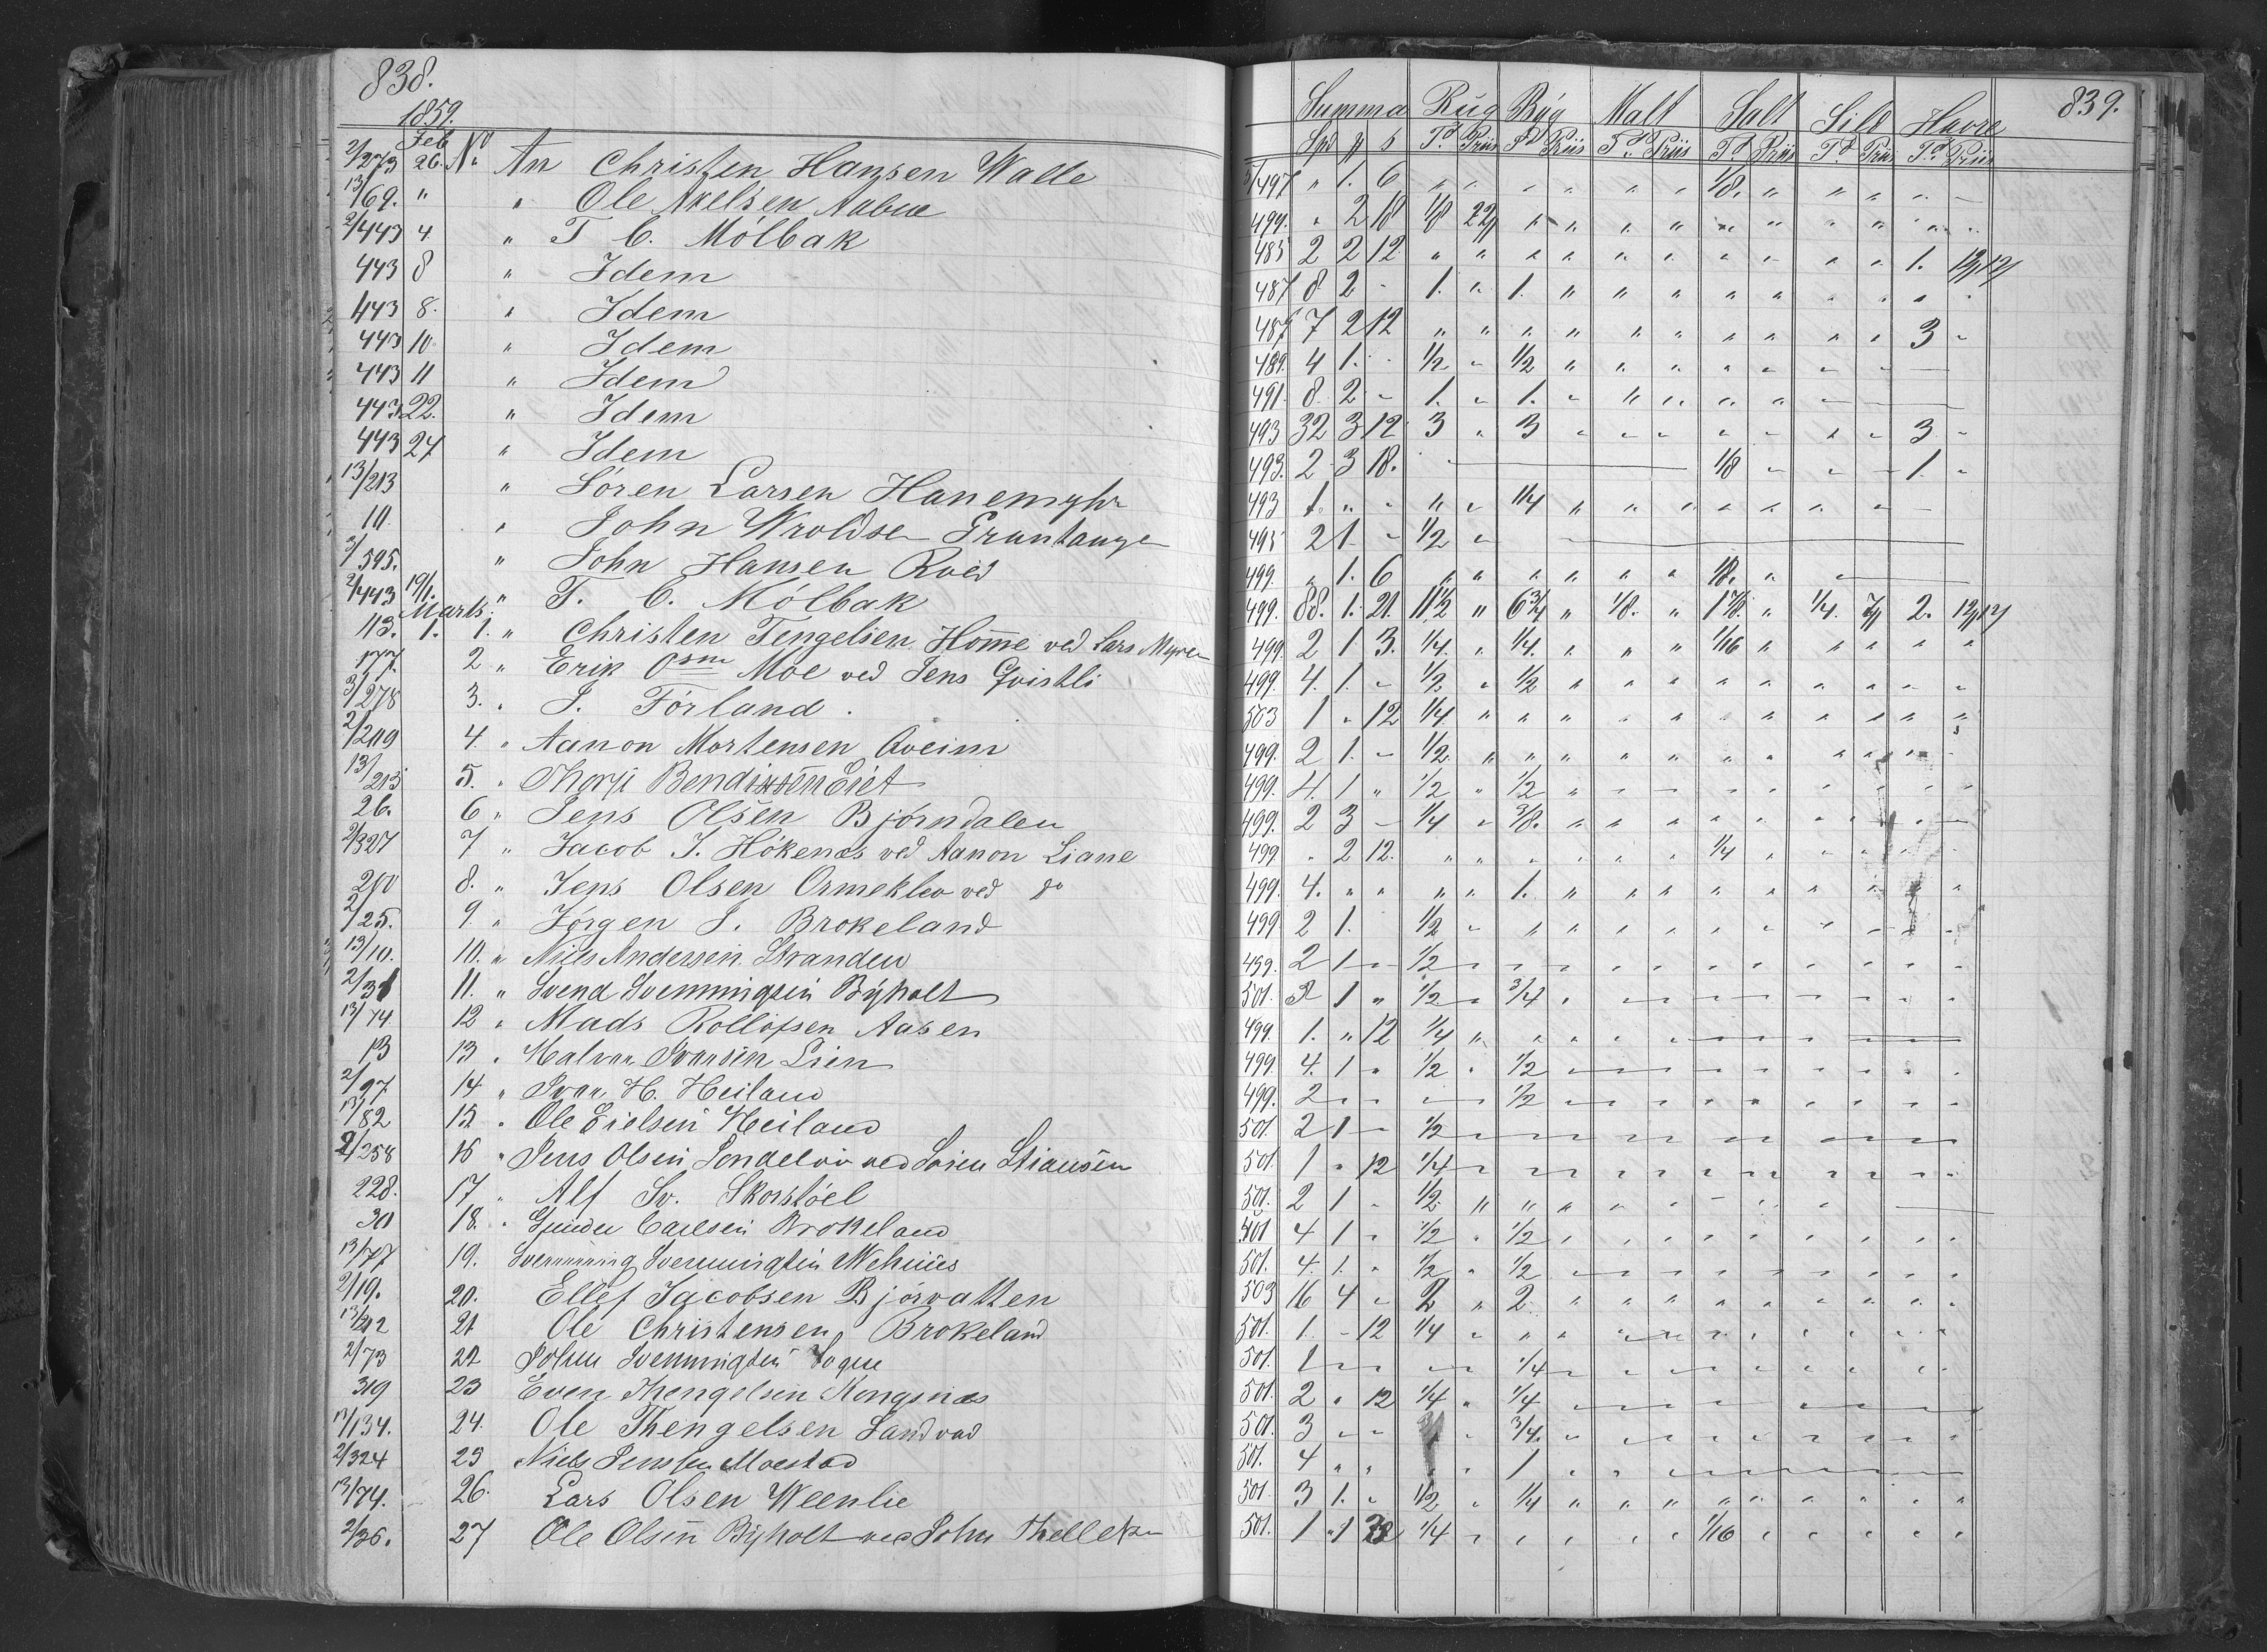 838.
1859.
Feb
2/373 26. No An Christen Hansen Walle
13/69. " " Ole Axelsen Aabue
2/443 4 " T C. Mölbak
443 8 " Idem
443 8. " Idem
443 10 " Idem
443 11 " Idem
443 22. " Idem
443 27 " Idem
13/213 " Sören Larsen Hanemyhr
10. " John Wroldsen Grantange
3/595. " John Hansen Roed
2/443 19/1. " T. C. Mölbak
Marts
113. 1. 1. " Christen Tengelsen Home ved Lars Myren
177. 2 " Erik Osm Moe ved Jens Qvistli
3/278 3. " S. Förland.
2/219 4. " Aanon Mortensen Aveim
13/213 5. " Thorji Bendixsen Eiet
26. 6 " Jens Olsen Björndalen
2/327 7 " Jacob J. Hökenæs ved Aanon Liane
210 8. " Jens Olsen Ormeklev ved do
2/25. 9. " Jörgen J. Brokeland
13/10. 10. " Niels Andersen Stranden
2/31 11. " Svend Svenningsen Byholt
13/74 12 " Mads Rollofsen Aasen
13 13 " Halvor Ivarsen Lien
2/97 14 " Ivar H. Heiland
13/82 15 " Ole Eielsen Heiland
2/258 16 " Jens Olsen Söndelöv ved Sören Stiansen
228. 17 " Alf Sv. Skorstöel
30 18. " Gunder Carlsen Brokeland
13/77 19. Svenning Svenningsen Wehuus
2/19. 20. Ellef Jacobsen Björvatten
13/212 21 Ole Christensen Brokeland
2/73 22 John Svenningsen
319 23 Even Thengelsen Kongsnæs
13/134. 24. Ole Thengelsen Landvad
2/324 25 Niels Jensen Moestad
13/74. 26. Lars Olsen Weenlie
2/36. 27 Ole Olsen Byholt ved John Thellefsen
839.
Summa Rug Byg Malt Salt Sild Havre
Spd # s Td Priis Td Priis Td Priis Td Priis Td Priis Td Priis
5/497 " 1. 6 " " " " " " 1/8. " " " " -
499. " 2 18 1/8 22/ " " " " " " " " " "
485 2 2 12 " " " " " " " " " " 1. 12/17/
487 8 2 - 1. " 1. " " " " " " " " "
487 7 2 12 " " " " " " " " " " 3 "
489. 4 1. - 1/2 " 1/2 " " " " " " " -
491. 8. 2 - 1. " 1. " " " " " -
493 32 3 12 3 " 3 " " " " " " " 3 "
493. 2 3 18. - 1/8 " " - 1. "
493 1. " - " " 1/4 " " " " " " " -
495 2 1. - 1/2 " -
499. " 1. 6 " " " " " " 1/8. " -
499. 88. 1. 21. 11 1/2 " 6 3/4 " 1/8. " 1 7/8. " 1/4. 7/ 2. 12/17
499 2 1 3. 1/4. " 1/4. " " " 1/16 " " " " "
499. 4. 1. - 1/2 " 1/2 " " " " " " " " "
503 1 " 12 1/4 " " " " " " " " " " "
499. 2 1. - 1/2 " " " " " " " " " " "
499. 4. 1 " 1/2 " 1/2 " " " " " " " " "
499. 2 3 - 1/4 " 3/8. " " " " " " " " "
499 " 2 12. " " " " " " 1/4 " " " "
499. 4. " " " " 1. " " " " " " " " "
499 2 1. 1/2 " " " " " " " " " " "
499. 2 1 " 1/2 " " " " " " " " " " "
501. 3 1 " 1/2 " 3/4 " " " " " " " " "
499. 1. " 12 1/4 " " " " " -
499. 4. 1 " 1/2 " 1/2 " " " " " " " " "
499. 2 " " " 1/2 " " " " " " " " "
501. 2 1 - 1/2 " " " " " " " " " " "
501. 1 " 12 1/4 " " " " " " " " " " "
501. 2 1 " 1/2 " " " " " " " " " -
501 4 1 " 1/2 " 1/2 " " " " " " " " "
501. 4. 1. " 1/2 " 1/2 " " " " " " " " "
503 16 4 " 2 " 2 " " " " " " " " "
501. 1. - 12 1/4 " " " " " " " " " " "
501. 1 " " " " 1/4 " " " " " " " " "
501. 2 " 12 1/4 " 1/4 " " " " " " " " "
501. 3 " " " 3/4. " " " " " " " " "
501. 4 " " " " 1 " " " " " " " " "
501 3 1. " 1/2 " 1/4 " " " " " " " " "
501. 1 1 1/4 " " " " " 1/16 " " " " "